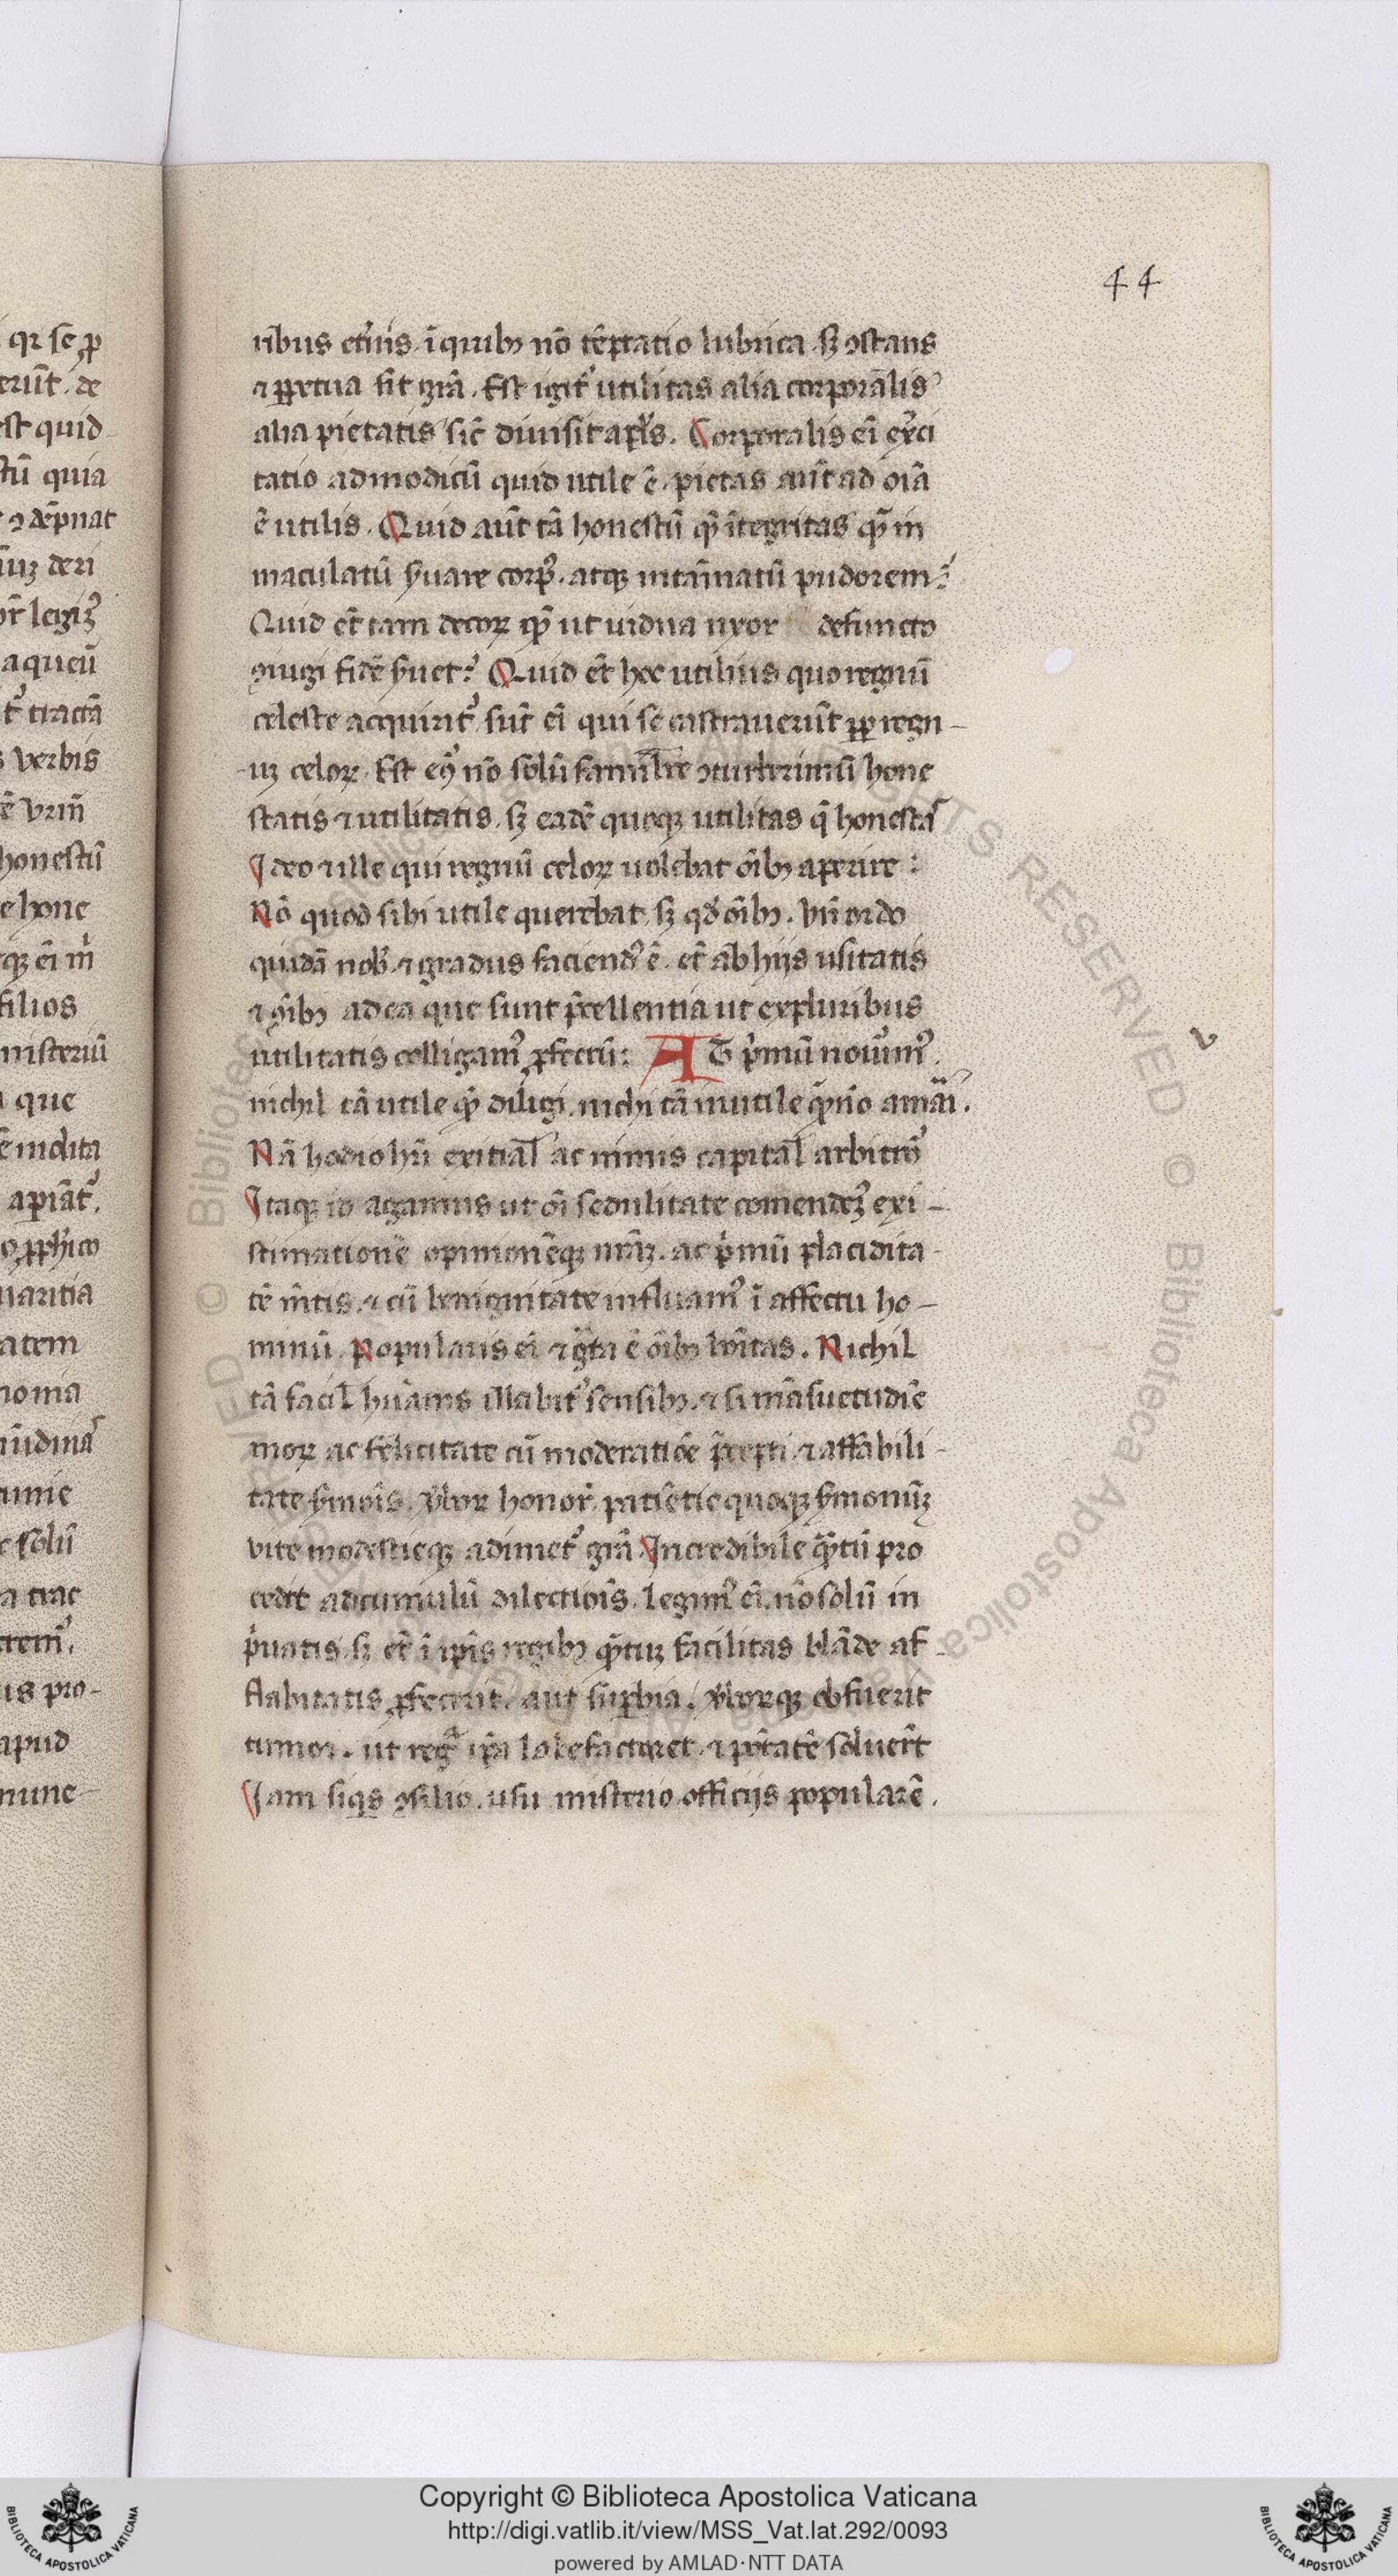 44
ribus et̃nis. ĩ quibꝫ nõ tẽptatio lubrica. sꝫ ꝯstans
⁊ ꝑpetua sit grã. Est igit᷑ utilitas alia corporãlis
alia pietatis sic̃ diuisit apl̃s. Corporalis eĩ exr̃ci
tatio ad modicũ quid utile ẽ. pietas aũt ad oĩa
ẽ utilis. Quid aũt tã honestũ qꝫ̃ ĩtegritas qꝫ̃ in
maculatũ s̃uare corpꝰ. atqꝫ intãinatũ pudorem?
Quid et̃ tam decoꝝ qꝫ̃ ut uidua uxor defuncto
ꝯiugi fidẽ s̃uet? Quid et̃ hoc utilius quo regnũ
celeste acquirit᷑. sũt eĩ qui se castrauerũt ꝓpp̃ regn-
uꝫ celoꝝ. Est eꝰ nõ solũ famil̃re ꝯturb̃rimũ hone
statis ⁊ utilitatis. sꝫ eadẽ quoqꝫ utilitas q̃ honestaˢ
Ideo ⁊ ille qui regnũ celoꝝ uolebat oĩbꝫ aperire:
Nõ quod sibi utile querebat. sꝫ qd̃ oĩbꝫ. Vñ ordo
quidã nob̃. ⁊ gradus faciendꝰ ẽ. et̃ ab hijs usitatis
⁊ ꝯĩbꝫ ad ea que sunt p̃cellentia ut ex pluribus
utilitatis colligamꝰ ꝓfectũ: AC p̃mũ nouĩmꝰ.
nichil tã utile qꝫ̃ diligi. nichi tã inutile qꝫ̃ nõ amãi.
Nã hodio hr̃i exitial̃ ac nimis capital̃ arbitrõ
Itaqꝫ id agamus ut oĩ sedulitate comendeꝫꝰ exi-
stimationẽ opinionẽqꝫ nrã̃ꝫ. ac p̃mũ placidita-
tẽ m̃tis. ⁊ cũ benignitate influamꝰ ĩ affectu ho-
minũ. Popularis eĩ ⁊ g̃ta ẽ oĩbꝫ bõitas. Nichil
tã facil̃ hũanis illabit᷑ sensibꝫ. ⁊ si mãsuetudiẽ
moꝝ ac felicitate cũ moderatiõe p̃cepti. ⁊ affabili-
tate s̃mois. v̾boꝝ honor̃. patiẽtie quoqꝫ s̃monũꝫ
vice modestieqꝫ adimet᷑ grã Incredibile qꝫ̃tũ pro
cedit ad cumulũ dilectiõis. Legimꝰ eĩ. nõ solũ in
p̃uatis. sꝫ et̃ ĩ ip̃is regibꝫ qꝫ̃tuꝫ facilitas blãde af-
flabitatis ꝓfecerit. aut suꝑbia. v̾boꝝqꝫ obfuerit
tumor. ut regᵃ ip̃a labefactaret. ⁊ potẽtatẽ soluer̃t
Iam siqs ꝯsilio. usu misterio. officijs popularẽ.
Copyright © Biblioteca Apostolica Vaticana
http://digi.vatlib.it/view/MSS_Vat.lat.292/0093
powered by AMLAD·NTT DATA